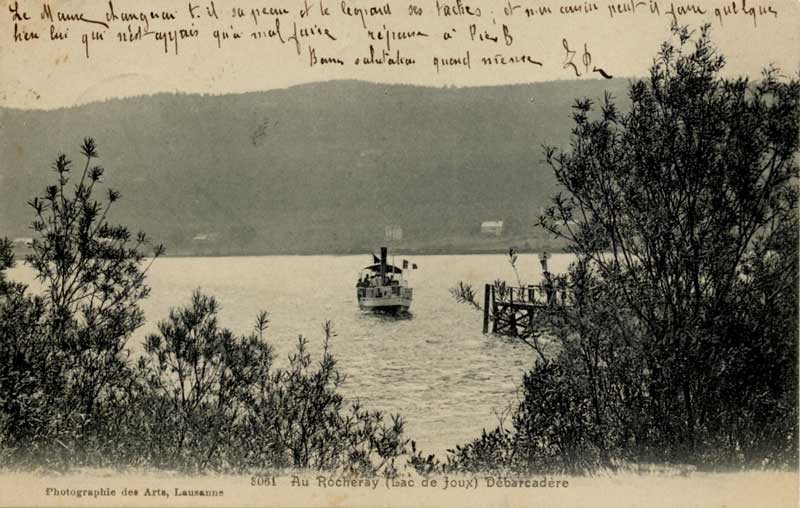 Le Maure changerait t. il sa peau et le léopard ses taches, et mon cousin peut il faire quelque
bien lui qui n'est appris qu'à mal faire réponse à
Bonne salutation quand même
3061 Au Rocheray (Lac de Joux) Débarcadère
Photographie des Arts, Lausanne